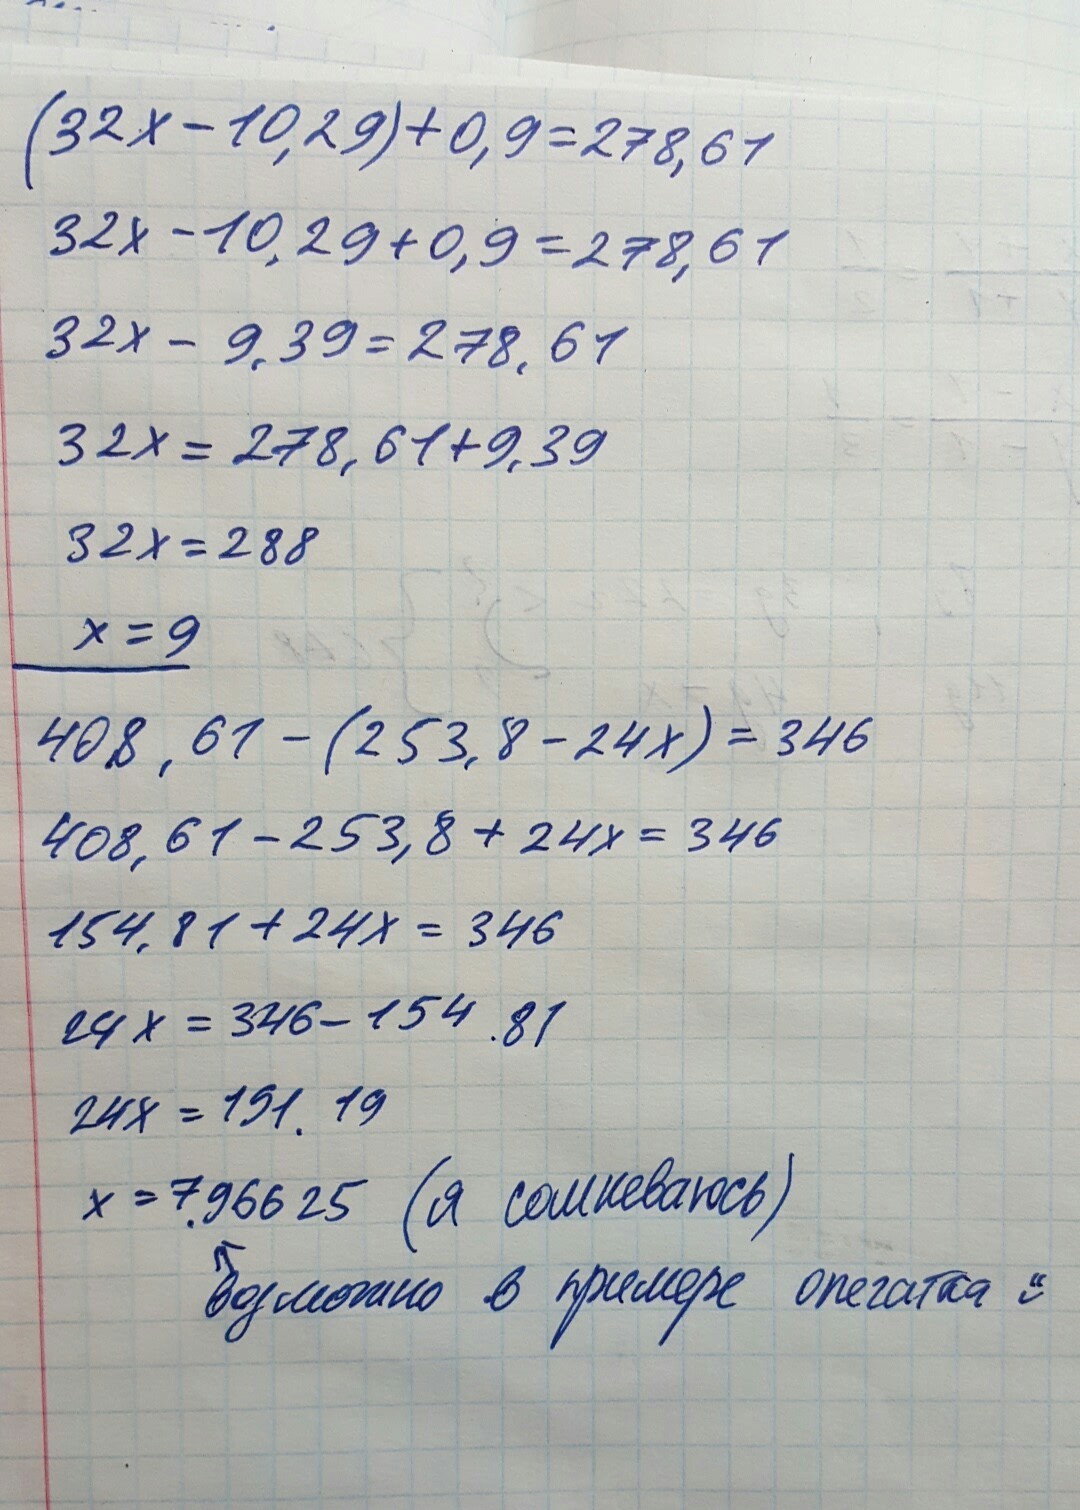 (32x-10,29)+0,9=278,61
32x-10,29+0,9=278,61
32x-9.39=278.61
32x=278,61+9.39
32x=288
x=9
408,61-(253,8-24x)=346
408,61-253,8+24x=346
154.81+24x=346
24x=346-154.81
24x=191.19
x=7.96625 (я сомневаюсь)
возможно в примере опечатка